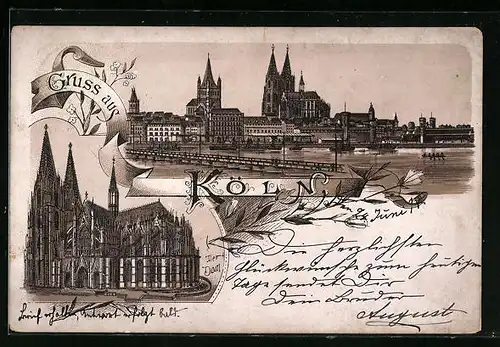 Gruss aus
KÖLN,
Juni
Der
Dom
Die herzlichsten
Glückwünsche zum heutigen
Tage sendet Dir
Dein Bruder
August
Brief erhalten, Antwort erfolgt bald.